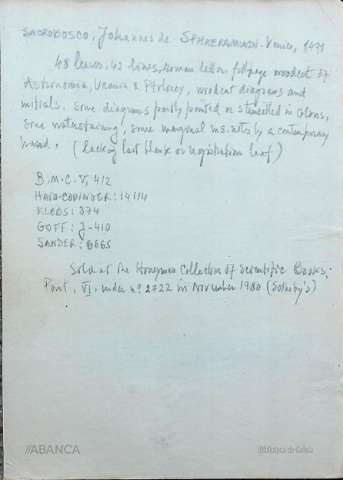 SACROBOSCO, Johannes de - SPHAERA MUNDI - Venice, 14
48 leaves, 42 lines, roman letter, full page woodcut of
Astronomia, Urania & Ptolemy, woodcut diagrams and
initials. Some diagrams partly printed or stencilled in colours,
some waterstaining, some marginal ms. notes by a contemporary
hand. (lacking last blank or registration leaf)
B.M.C. V, 412
HAIN-COPINGER: 14114
KLEBS: 874
GOFF: J-410
SANDER: 6665
Sold at the Honeyman Collection of Scientific Books,
Part. VI, under nº 2722 in November 1980 (Sotheby's)
//ABANCA
Biblioteca de Galicia